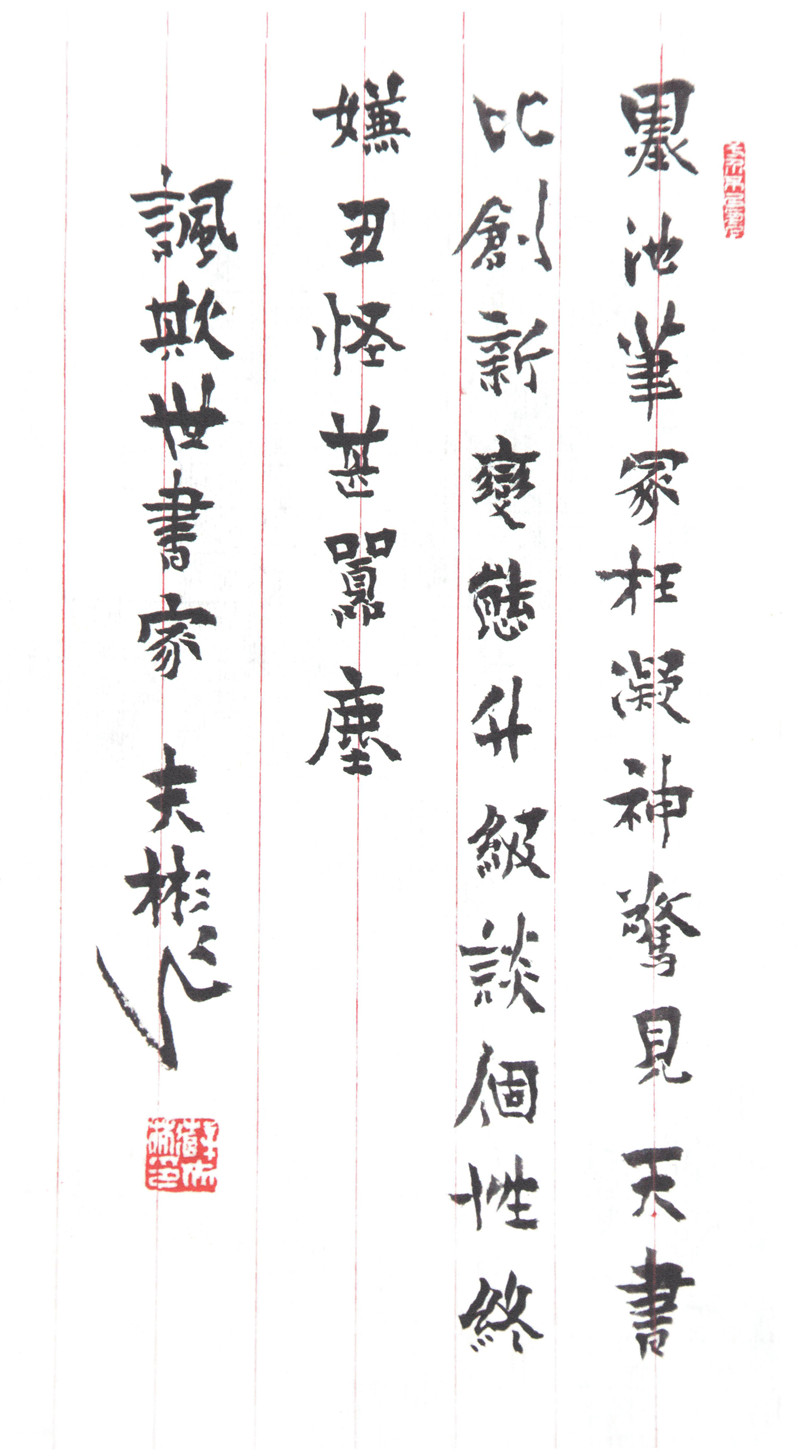 墨池筆冢枉凝神驚見天書
比創新變態升級談個性終
嫌丑怪甚囂塵
諷欺世書家 夫彬作